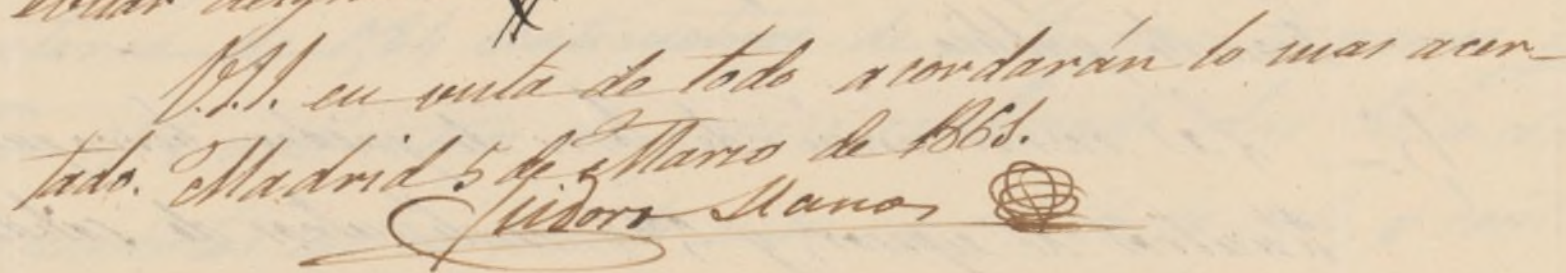 V.S.S. en vista de todo acordarán lo mas acer-
tado. Madrid 5 de Marzo de 1868.
Isidoro Llanos